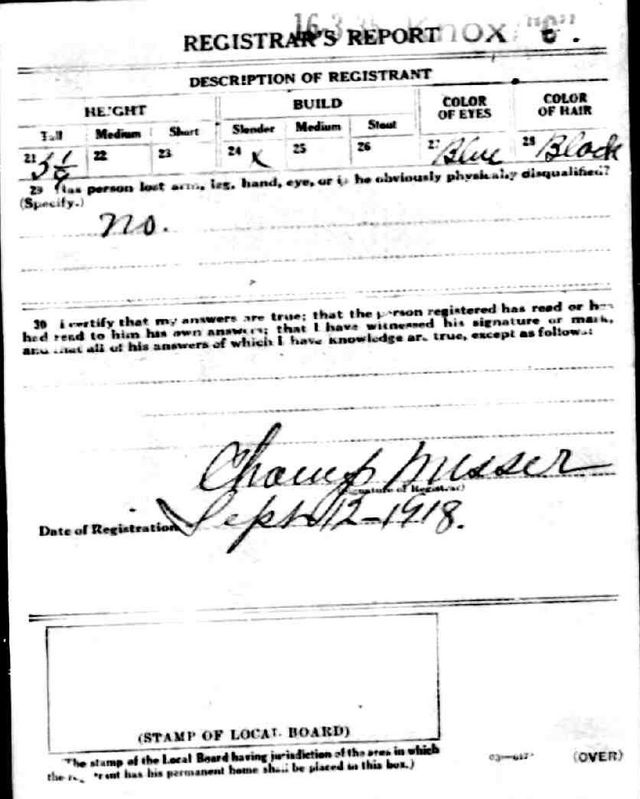 16-3-35 Knox "C".
REGISTRAR'S REPORT
DESCRIPTION OF REGISTRANT
HEIGHT BUILD COLOR OF EYES COLOR OF HAIR
Tall Medium Short Slender Medium Stout
21 5 1/2 22 23 24 x 25 26 27 Blue 28 Black
29 Has person lost arm, leg, hand, eye, or is he obviously physically disqualified?
(Specify.)
no.
30 I certify that my answers are true; that the person registered has read or has
had read to him his own answers; that I have witnessed his signature or mark,
and that all of his answers of which I have knowledge are true, except as follows:
Champ Messer
(Signature of Registrar)
Date of Registration Sept. 12-1918.
(STAMP OF LOCAL BOARD)
The stamp of the Local Board having jurisdiction of the area in which
the registrant has his permanent home shall be placed in this box.)
(OVER)